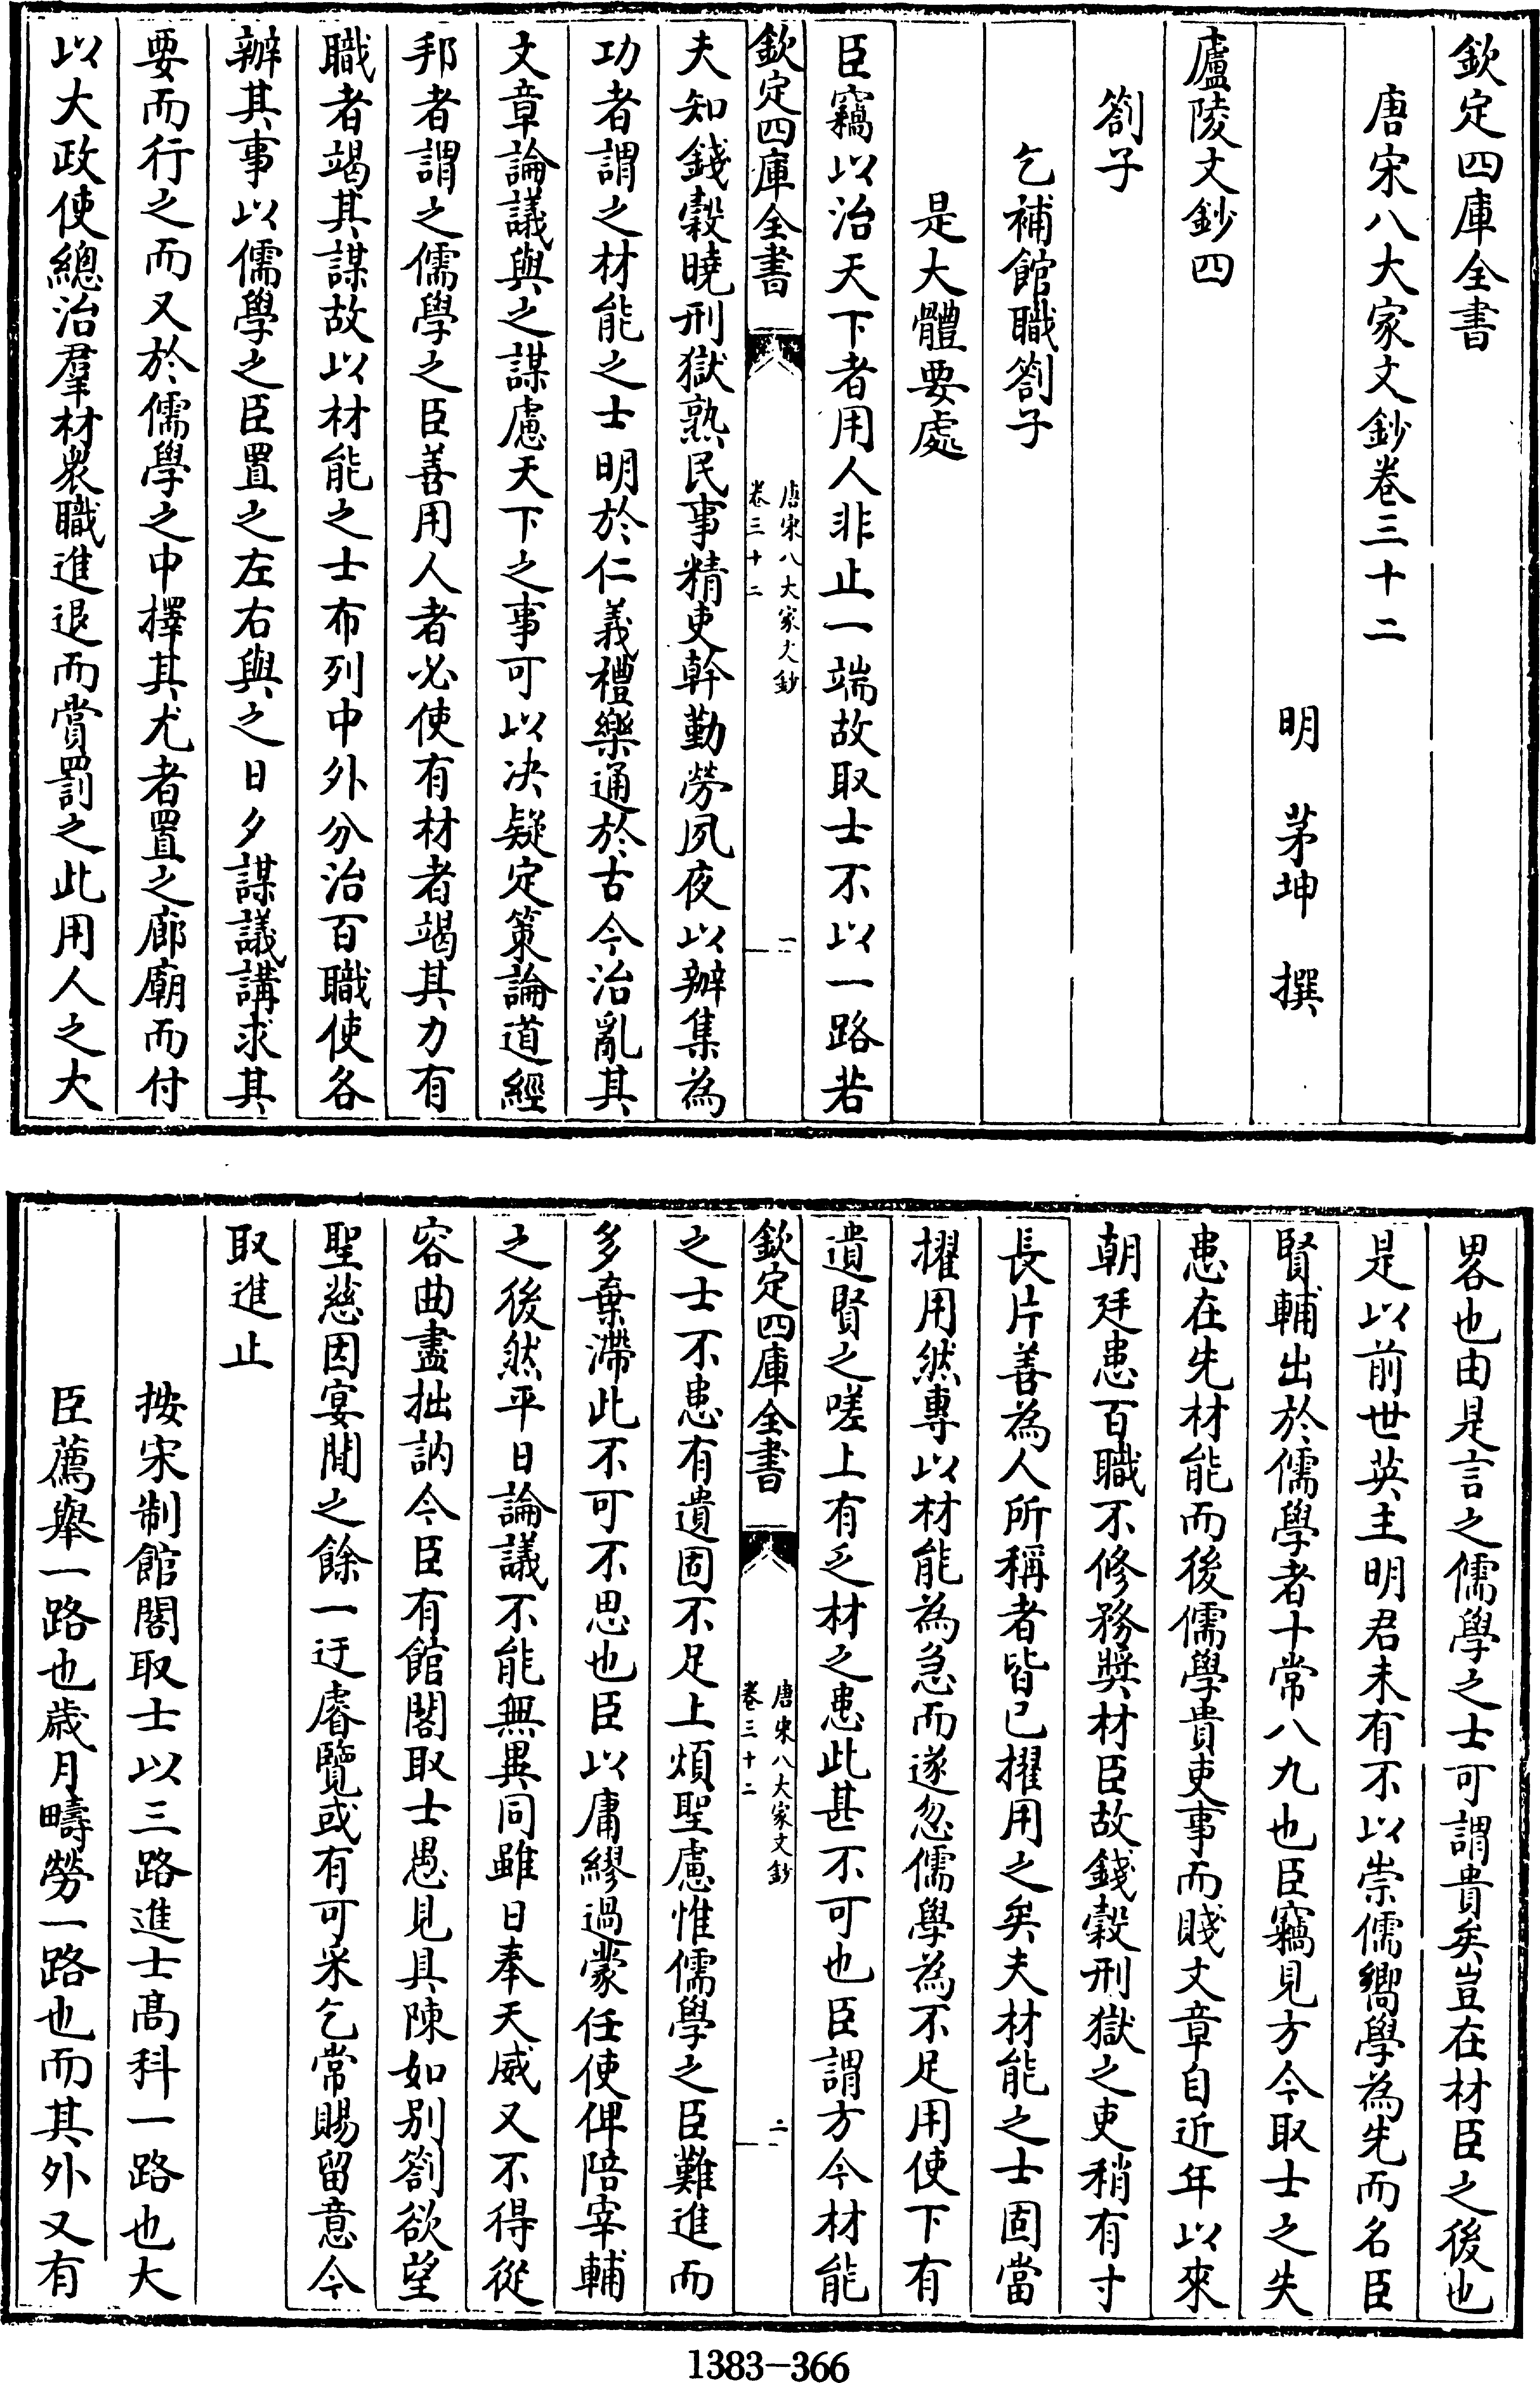 欽定四庫全書
唐宋八大家文鈔卷三十二
明　茅坤　撰
廬陵文鈔四
劄子
乞補館職劄子
是大體要處
臣竊以治天下者用人非止一端故取士不以一路若
欽定四庫全書
唐宋八大家文鈔
卷三十二
一
夫知錢穀曉刑獄熟民事精吏幹勤勞夙夜以辦集為
功者謂之材能之士明於仁義禮樂通於古今治亂其
文章論議與之謀慮天下之事可以决疑定策論道經
邦者謂之儒學之臣善用人者必使有材者竭其力有
職者竭其謀故以材能之士布列中外分治百職使各
辦其事以儒學之臣置之左右與之日夕謀議講求其
要而行之而又於儒學之中擇其尤者置之廊廟而付
以大政使總治羣材衆職進退而賞罰之此用人之大
畧也由是言之儒學之士可謂貴矣豈在材臣之後也
是以前世英主明君未有不以崇儒嚮學為先而名臣
賢輔出於儒學者十常八九也臣竊見方今取士之失
患在先材能而後儒學貴吏事而賤文章自近年以來
朝廷患百職不修務奬材臣故錢穀刑獄之吏稍有寸
長片善為人所稱者皆已擢用之矣夫材能之士固當
擢用然專以材能為急而遂忽儒學為不足用使下有
遺賢之嗟上有乏材之患此甚不可也臣謂方今材能
欽定四庫全書
唐宋八大家文鈔
卷三十二
二
之士不患有遺固不足上煩聖慮惟儒學之臣難進而
多棄滯此不可不思也臣以庸繆過蒙任使俾陪宰輔
之後然平日論議不能無異同雖日奉天威又不得從
容曲盡拙訥今臣有館閣取士愚見具陳如别劄欲望
聖慈因宴閒之餘一迂睿覽或有可采乞常賜留意今
取進止
按宋制館閣取士以三路進士髙科一路也大
臣薦舉一路也歲月疇勞一路也而其外又有
1383-366